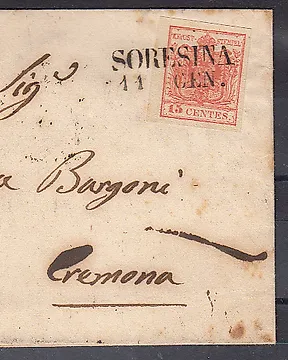 SORESINA
11 GEN.
KKPOST-STEMPEL
15 CENTES.
Sigʳ
Bargoni
Cremona